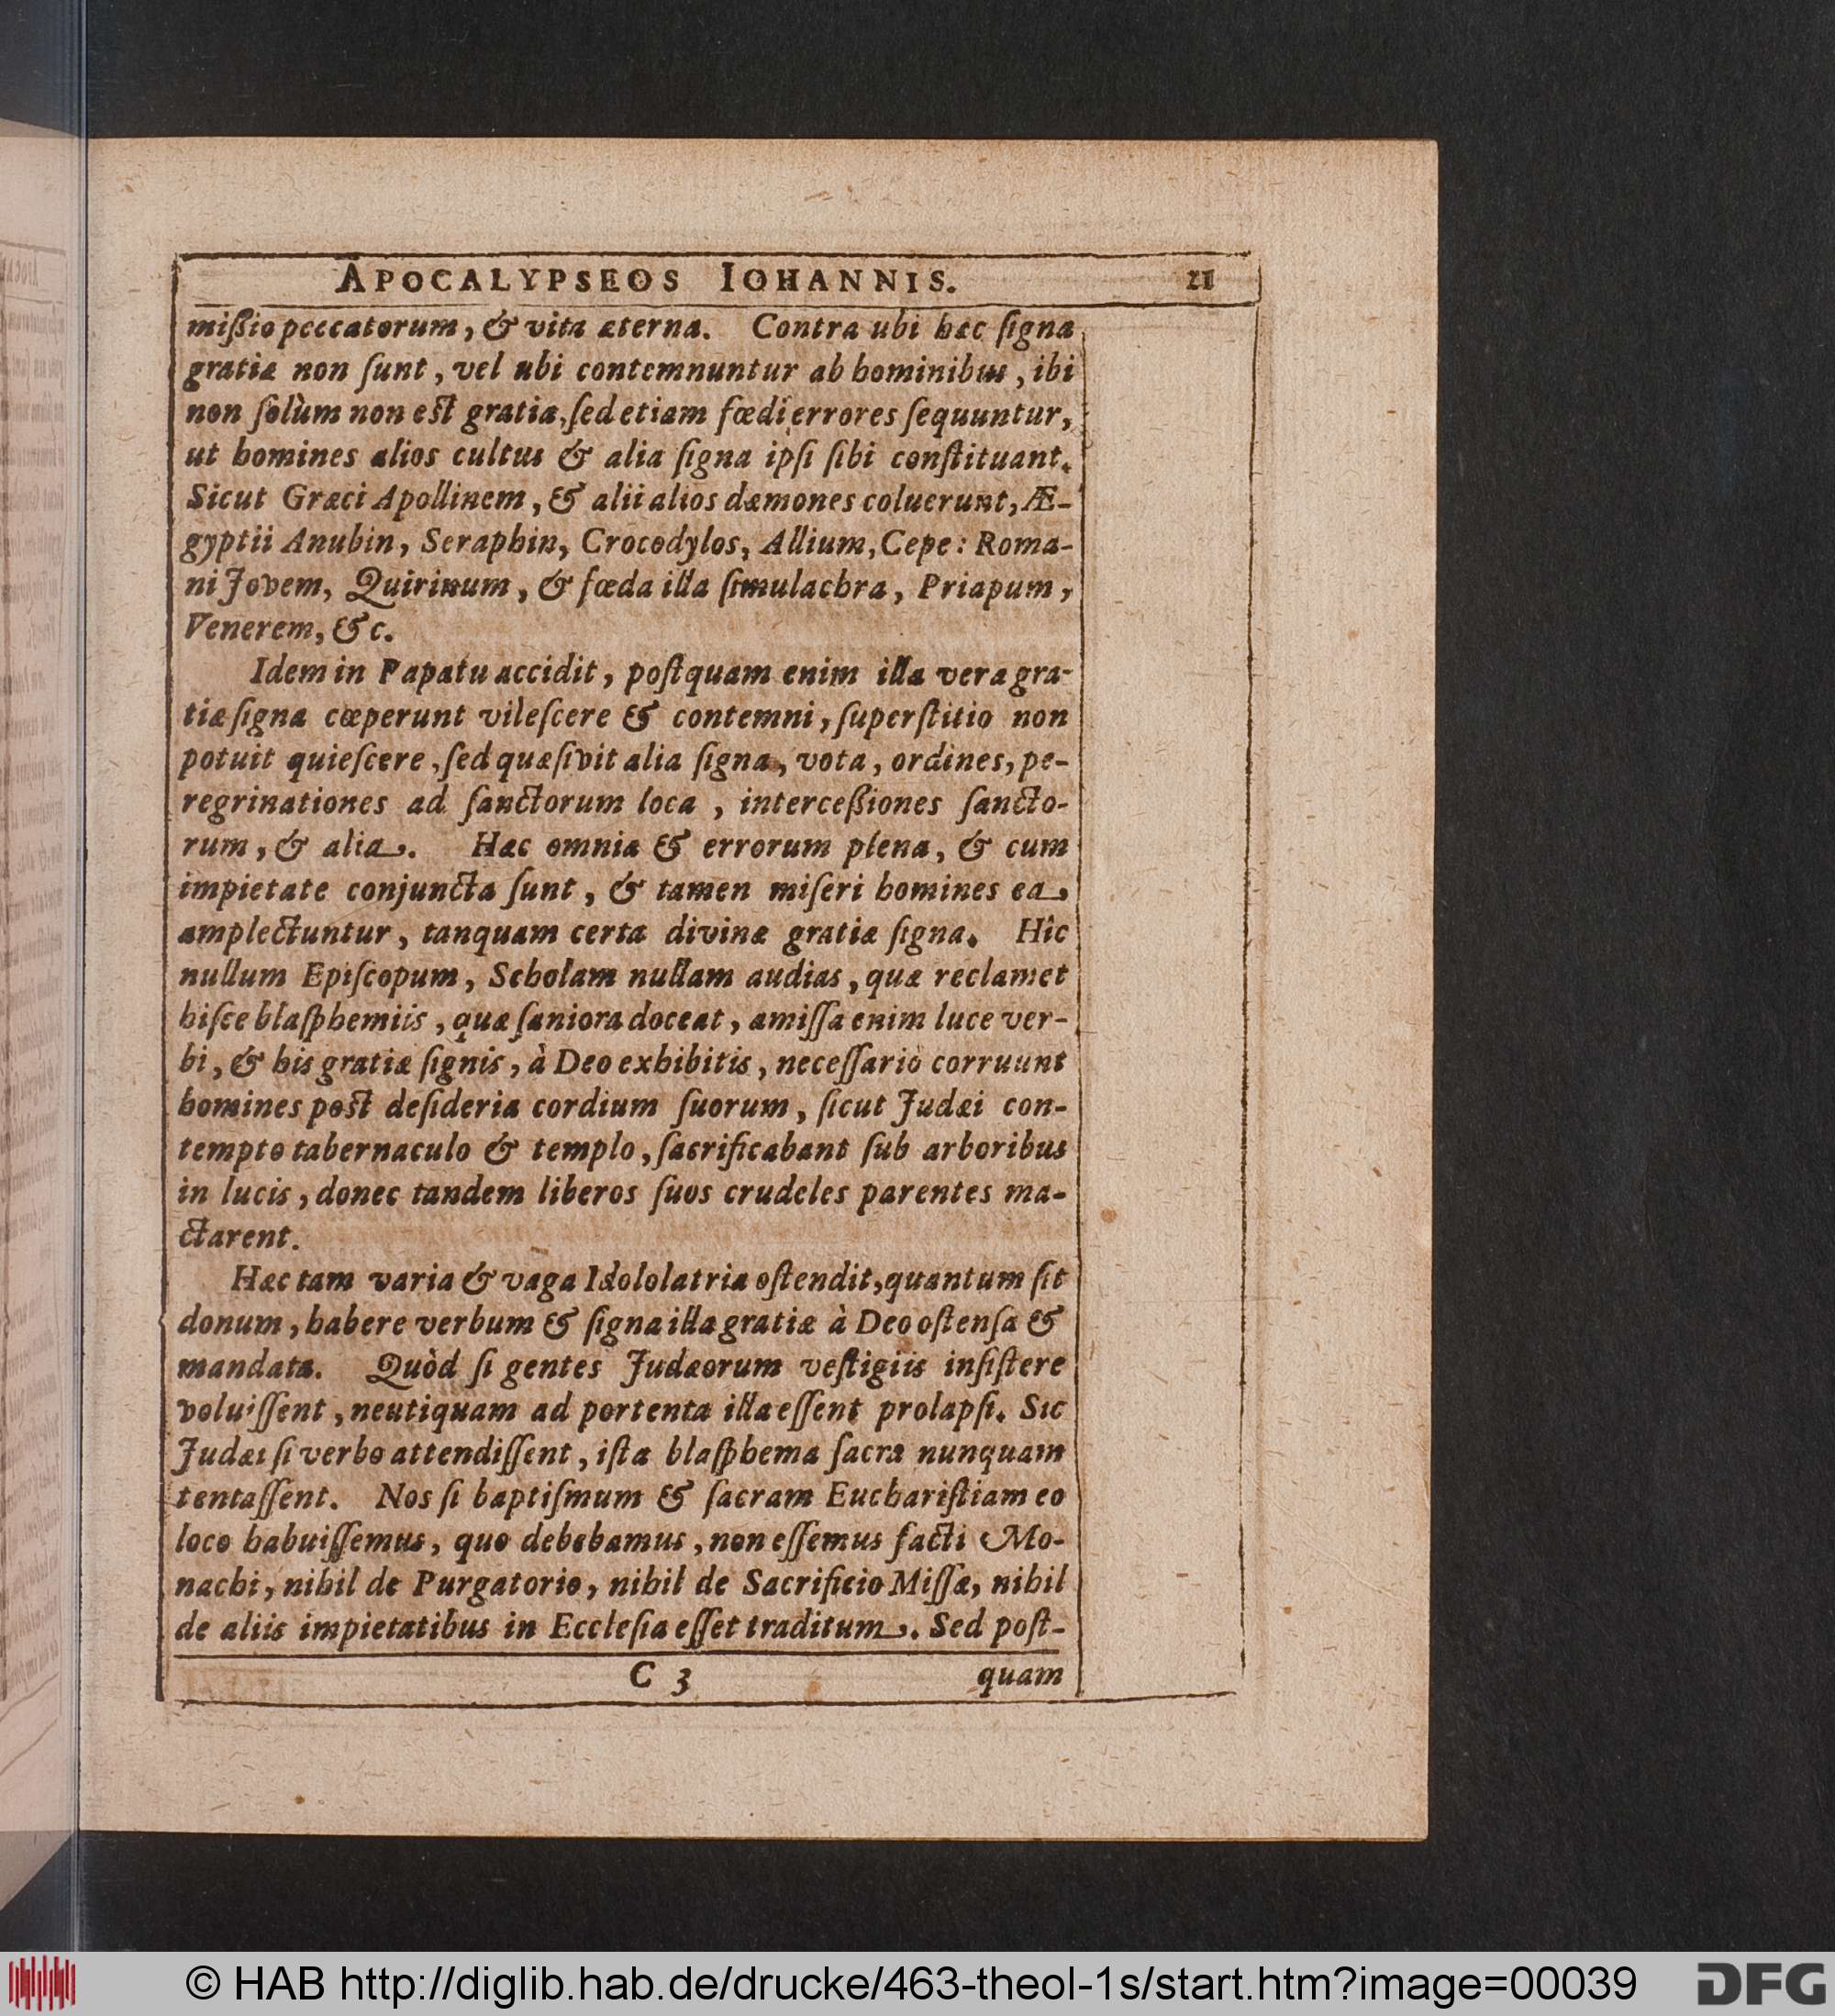 APOCALYPSEOS IOHANNIS. 21
mißio peccatorum, & vita æterna. Contra ubi hæc ſigna
gratiæ non ſunt, vel ubi contemnuntur ab hominibus, ibi
non ſolùm non eſt gratia, ſed etiam fœdi errores ſequuntur,
ut homines alios cultus & alia ſigna ipſi ſibi conſtituant.
Sicut Græci Apollinem, & alii alios dæmones coluerunt, Æ-
gyptii Anubin, Seraphin, Crocodylos, Allium, Cepe: Roma-
ni Jovem, Quirinum, & fœda illa ſimulachra, Priapum,
Venerem, &c.
Idem in Papatu accidit, poſtquam enim illa vera gra-
tiæ ſigna cœperunt vileſcere & contemni, ſuperſtitio non
potuit quieſcere, ſed quæſivit alia ſigna, vota, ordines, pe-
regrinationes ad ſanctorum loca, interceßiones ſancto-
rum, & alia. Hæc omnia & errorum plena, & cum
impietate conjuncta ſunt, & tamen miſeri homines ea
amplectuntur, tanquam certa divinæ gratiæ ſigna. Hîc
nullum Epiſcopum, Scholam nullam audias, quæ reclamet
hiſce blaſphemiis, quæ ſaniora doceat, amiſſa enim luce ver-
bi, & his gratiæ ſignis, à Deo exhibitis, neceſſariò corruunt
homines poſt deſideria cordium ſuorum, ſicut Judæi con-
tempto tabernaculo & templo, ſacrificabant ſub arboribus
in lucis, donec tandem liberos ſuos crudeles parentes ma-
ctarent.
Hæc tam varia & vaga Idololatria oſtendit, quantum ſit
donum, habere verbum & ſigna illa gratiæ à Deo oſtenſa &
mandata. Quòd ſi gentes Judæorum veſtigiis inſiſtere
voluiſſent, neutiquam ad portenta illa eſſent prolapſi. Sic
Judæi ſi verbo attendiſſent, iſta blaſphema ſacra nunquam
tentaſſent. Nos ſi baptiſmum & ſacram Euchariſtiam eo
loco habuiſſemus, quo debebamus, non eſſemus facti Mo-
nachi, nihil de Purgatorio, nihil de Sacrificio Miſſæ, nihil
de aliis impietatibus in Eccleſia eſſet traditum. Sed poſt-
C 3 quam
© HAB http://diglib.hab.de/drucke/463-theol-1s/start.htm?image=00039 DFG